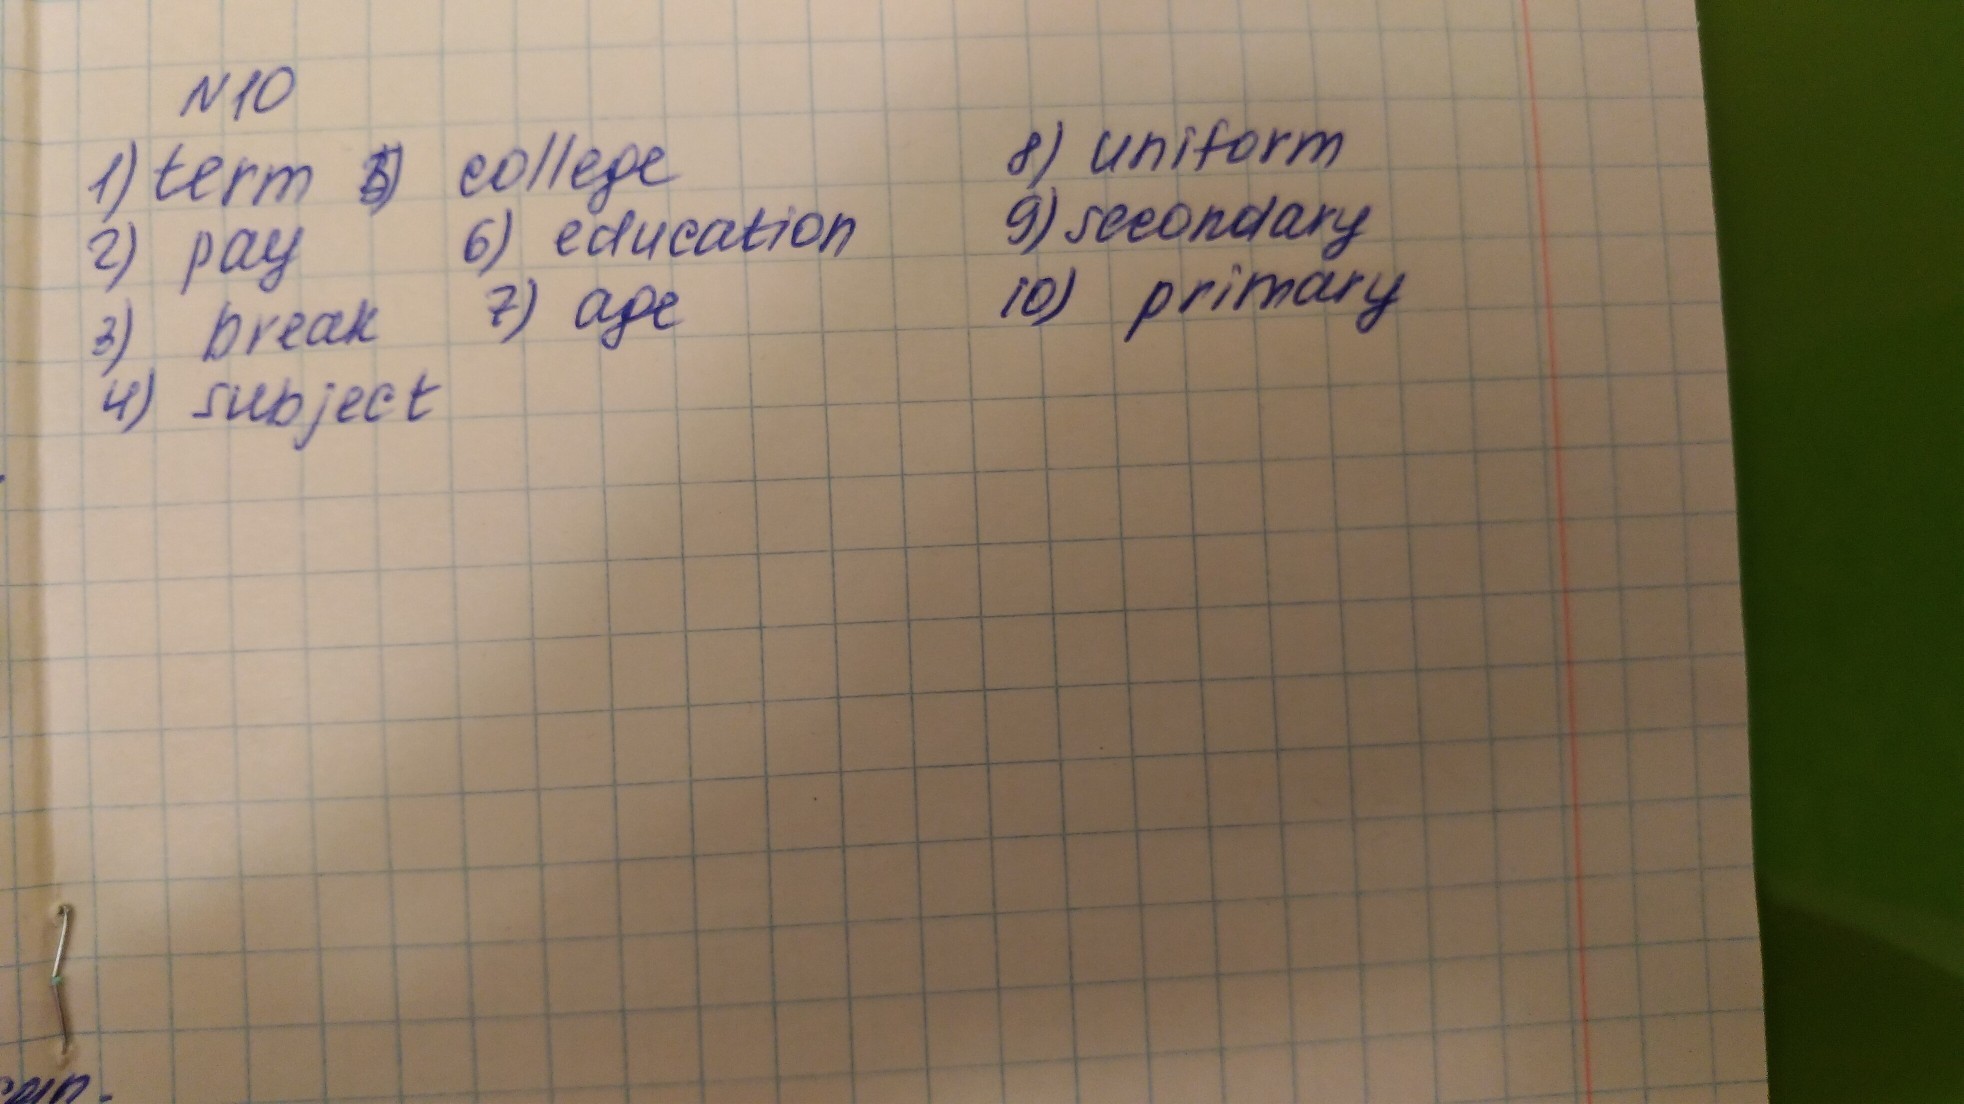 N10
1) term 5) college 8) uniform
2) pay 6) education 9) secondary
3) break 7) age 10) primary
4) subject